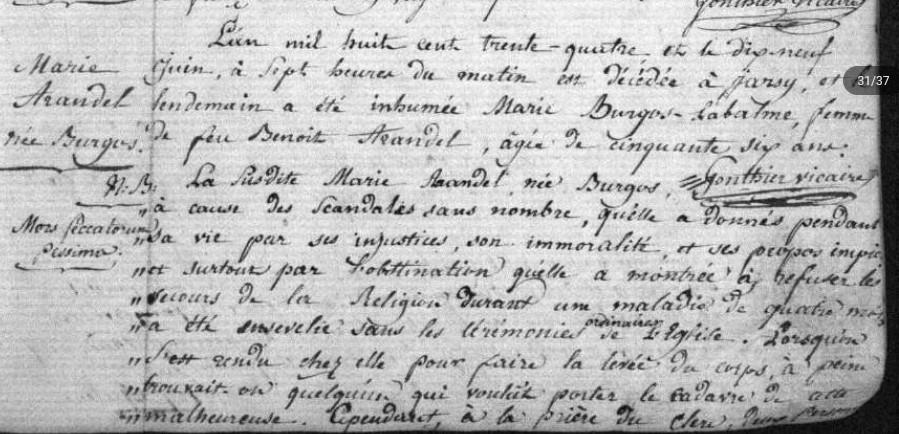 Gonthier vicaire
L'an mil huit cent trente-quatre et le dix-neuf
Juin, à Sept heures du matin est décédée à Jarsy, et
31/37
lendemain a été inhumée Marie Burgos-Labalme, femme
de feu Benoit Arandel, âgée de cinquante six ans.
Marie
Arandel
née Burgos.
Gonthier vicaire
N. B.
La Susdite Marie Arandel née Burgos,
"à cause des Scandales sans nombre, qu'elle a donnés pendant
Mors peccatorum
pessima.
"sa vie par ses injustices, son immoralité, et ses propos impies
"et surtout par l'obstination qu'elle a montrée à refuser les
"secours de la Religion durant une maladie de quatre mois
"a été ensevelie sans les Cérémonies ordinaires de l'Eglise. Lorsqu'on
"s'est rendu chez elle pour faire la levée du corps, à peine
"trouvait-on quelqu'un qui voulût porter le cadavre de cette
"malheureuse. Cependant, à la prière du Clerc, deux